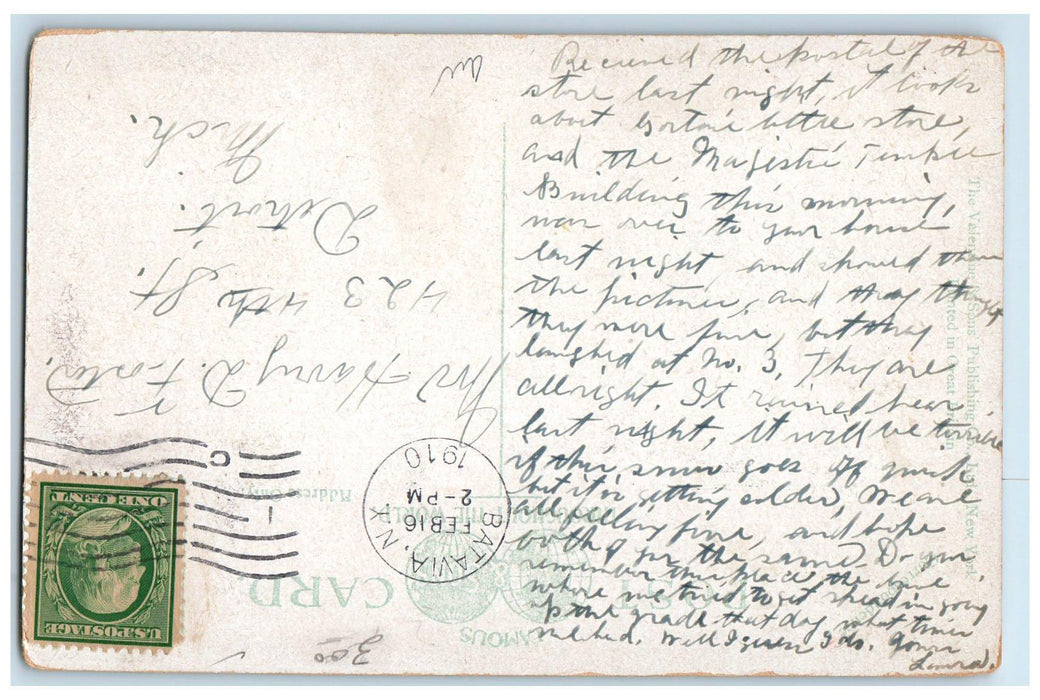 Received the postal of the
store last night, it looks
about Gorton's little store,
and the Majestic Temple
Building this morning,
was over to your house
last night, and showed them
the pictures, and they thought
they were fine, but they
laughed at No. 3. They are
allright. It rained hear
last night, it will be terrible
if this snow goes off quick
but it is getting colder, We are
all feeling fine, and hope
both of you the same. Do you
remember this place the time
where we tried to get ahead in going
up the grade that day, what times
we had. Well I guess I do. Yours
POST CARD
FAMOUS
THROUGHOUT THE WORLD
Address Only.
The Valentine & Sons Publishing Co., Ltd. New York
Printed in Great Britain
BATAVIA, N.Y.
FEB 16
2-PM
1910
C
1
U.S. POSTAGE
ONE CENT
Mr Harry D. Foster,
423 4th St.
Detroit.
Mich.
300